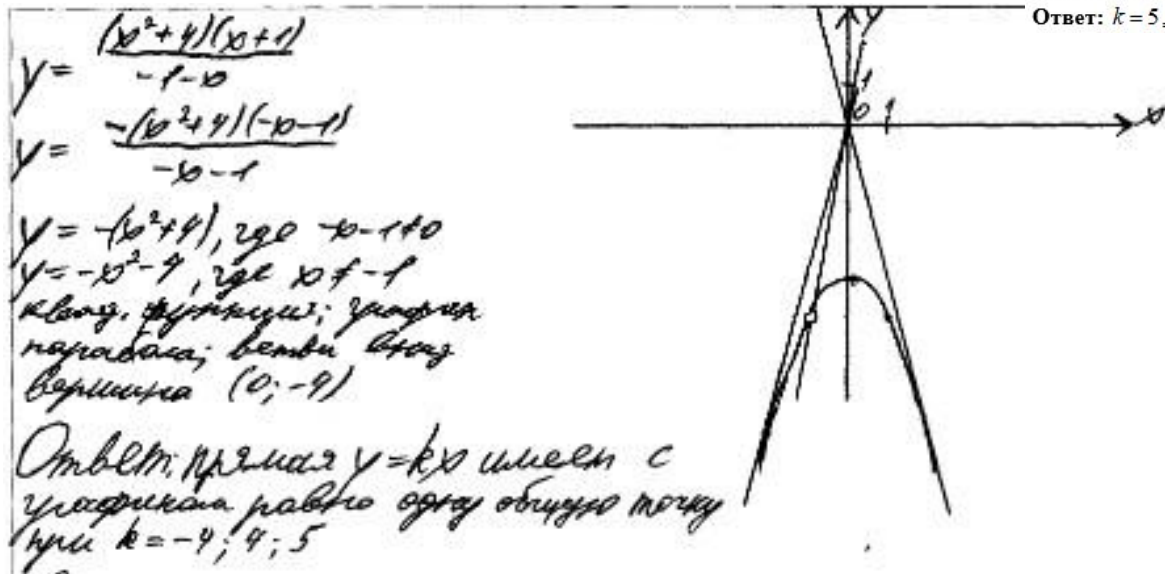 Ответ: k = 5,
y = (x²+4)(x+1) / -1-x
y = -(x²+4)(-x-1) / -x-1
y = -(x²+4), где -x-1≠0
y = -x²-4, где x ≠ -1
квад. функция; график
парабола; ветви вниз
вершина (0; -4)
Ответ: прямая y=kx имеет с
графиком ровно одну общую точку
при k = -4; 4; 5
y
1
0
1
x